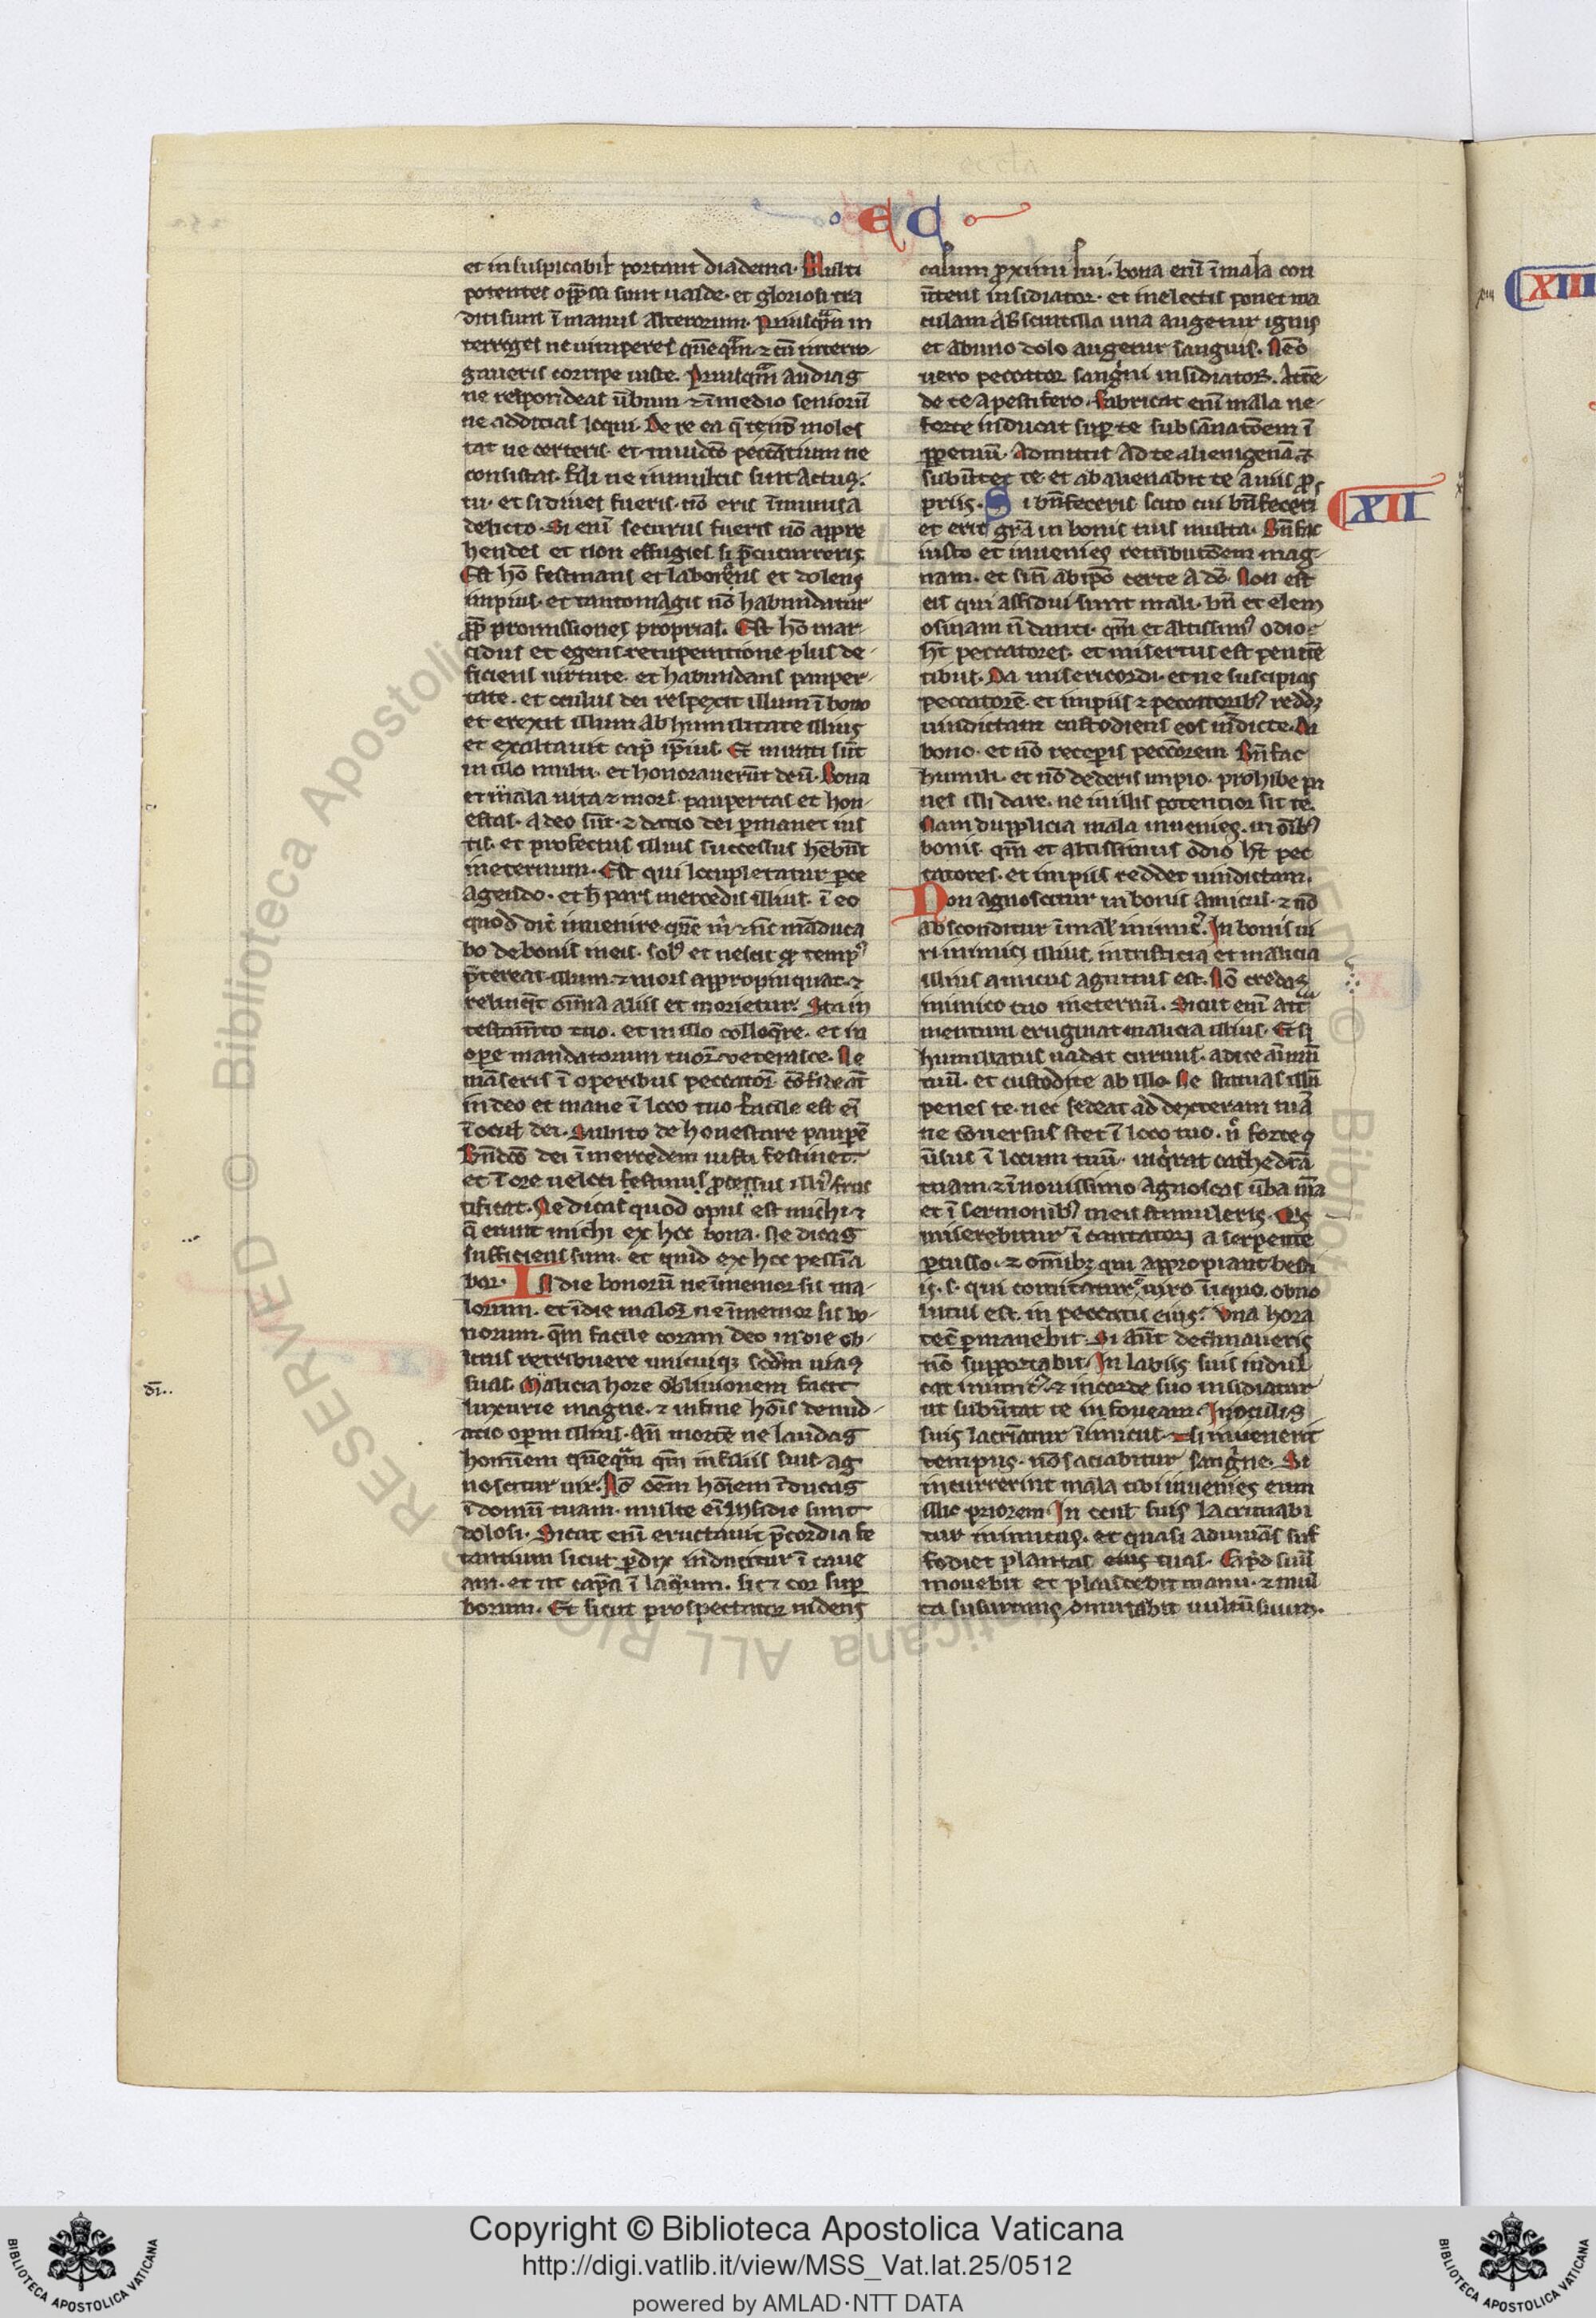 EC
et insuspicabil' portant diadema. Multi
potentes opp̄ssi sunt ualde. et gloriosi tra
diti sunt ī manus alterorum. Priusq̄m in
terroges ne uituperes quēq̄m. ⁊ cū interro-
gaueris corripe iuste. Priusq̄m audias
ne respondeas ūbum. ⁊ ī medio seniorū
ne addicias loqui. De re ea q̄ te nō moles
tat ne certeris. et in iudicō peccātium ne
consistas. Fili ne in multis sint actus.
tui. et si diues fueris. nō eris īmunis a
delicto. Si enī secutus fueris nō appre
hendes et non effugies si p̄cucurreris.
Est hō festinans et laborans et dolens
impius. et tanto magis nō habundatur
pp̄ promissiones proprias. Est hō mar-
cidus et egens recuperatione. plus de-
ficiens uirtute. et habundans pauper-
tate. et oculus dei respexit illum ī bono
et erexit illum ab humilitate illius
et exaltauit cap̄ ip̄ius. Et mirati sūt
in illo multi. et honorauerūt deū. Bona
et mala uita ⁊ mors. paupertas et hon-
estas. a deo sūt. ⁊ datio dei p̄manet ius
tis. et profectus illius successus hēbūt
in eternum. Est qui locupletatur parce
agendo. et h̄ pars mercedis illius. ī eo
quod dic̄ inueni reqūē m̄ ⁊ nc̄ māduca
bo de bonis meis solꝰ et nescit qꝫ tempꝰ
p̄tereat illum. ⁊ mors appropinquat. ⁊
relinq̄t om̄ia aliis et morietur. Sta in
testam̄to tuo. et in illo colloq̄re. et in
opere mandatorum tuoꝝ veterasce. Ne
māseris ī operibus peccatoꝝ. cōfide āt
in deo et mane ī loco tuo facile est eī
ī ocul' dei. Subito de honestare paupēm
Bn̄dcō dei ī mercedem iusti festinet.
et ī ore ueloci festinus processus illiꝰ fruc
tificat. Ne dicas quod opus est michi ⁊
q̄ erunt michi ex hoc bona. Ne dicas
sufficiens sum. et quid ex hoc pessīa
bor. In die bonorū ne īmemor sis ma-
lorum. et ī die maloꝝ ne īmemor sis bo-
norum. qm̄ facile coram deo in die ob-
itus retribuere unicuiqꝫ scd̄m uias
suas. Malicia hore obliuionem facit
luxurie magne. ⁊ in fine hōis denud-
atio operm illius. An̄ mortē ne laudas
hominem quēq̄m qm̄ in filiis suis ag
noscitur uir. Nō oēm hōiem īducas
ī domū tuam. multe eī insidie sunt
dolosi. Sicut enī eructauit p̄cordia fe
tantium sicut p̄dix inducitur ī caue
am. et ut cap̄a ī laq̄um. sic ⁊ cor sup̄
borum. Et sicut prospectator uidens
casum proximi sui. bona enī ī mala con
ūtens insidiator. et in electis ponet ma
culam. Ab scintilla una augetur ignis
et ab uno dolo augetur sanguis. Hō
uero peccator sangui insidiator. Atte-
de te a pestifero. fabricat enī mala ne
forte inducat sup te subsanatōem ī
p̄petuū. Admitte ad te alienigenā. ⁊
subūtet te. et abalienabit te a uiis p̄
priis. Si bn̄feceris scito cui bn̄feceri
XII
et erit grā in bonis tuis multa. Bn̄fac
iusto et inuenies retributōem mag-
nam. et si n̄ ab ip̄o certe a dō. Non est
eis qui assidui sunt mali. bn̄ et elem
osinam n̄ danti. qm̄ et altissimꝰ odio
h̄t peccatores. et misertus est penitē
tibus. Da misericordi. et ne suscipias
peccatorē. et impiis ⁊ peccatoribꝰ reddꝫ
uindictam custodiens eos in die ...
bono. et nō receperis peccōrem Bn̄fac
humili. et nō dederis impio. prohibe pa
nes illi dare. ne in illis potentior sit te.
Nam dupplicia mala inuenies. in oībꝰ
bonis. qm̄ et altissimus odio h̄t pec
catores. et impiis reddet uindictam.
Non agnoscitur in bonis amicus. ⁊ nō
abscondetur ī mal' inimicꝰ. In bonis ui
ri inimici illius. in tristicia et malicia
illius amicus agnitus est. Nō credas
inimico tuo in eternū. Sicut enī era
mentum eruginat malicia illius. Et si
humiliatus uadat curuus. adice aīmū
tuū. et custodite ab illo. Ne statuas illū
penes te. nec sedeat ad dexteram tuā
ne 9uersus stet ī loco tuo. n̄ forte 9
ūsus ī locum tuū. inq̄rat cathedrā
tuam ⁊ ī nouissimo agnoscas ūba mea
et ī sermonibꝰ meis stimuleris. Qis
miserebitur īcantatori a serpente
p̄cusso. ⁊ omībꝫ qui appropiant besti
is. s. qui comitatur uiro iniquo. obuo
lutus est. in peccatis eius. Una hora
tec̄ p̄manebit. Si aūt declinaueris
nō supportabit. In labiis suis indul
cat inimicꝰ. ⁊ in corde suo insidiatur
ut subūtat te in foueam. In oculis
suis lacrimatur īimicus. ⁊ si inuenerit
tempus. nō saciabitur sanguine. Si
incurrerint mala tibi inuenies eum
illic priorem. In ocul' suis lacrimabi
tur inimicus. et quasi adiuuās suf
fodiet plantas eius tuas. Capud suū
mouebit et plaudebit manu. ⁊ mul
ta susurrans 9mutabit uultū suum.
XIII
Copyright © Biblioteca Apostolica Vaticana
http://digi.vatlib.it/view/MSS_Vat.lat.25/0512
powered by AMLAD·NTT DATA